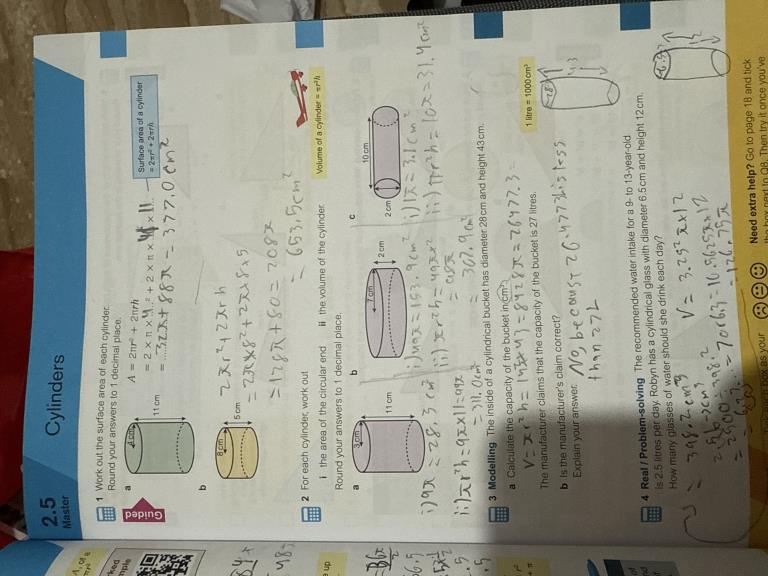 2.5 Cylinders
Master
1 Work out the surface area of each cylinder.
Round your answers to 1 decimal place.
Guided
a
4 cm
11 cm
A = 2πr² + 2πrh
= 2 × π × 4² + 2 × π × 4 × 11
= 32π + 88π = 377.0 cm²
Surface area of a cylinder
= 2πr² + 2πrh
b
8 cm
5 cm
2πr² + 2πrh
= 2π×8² + 2π×8×5
= 128π + 80 = 208π
= 653.5 cm²
2 For each cylinder, work out
i the area of the circular end ii the volume of the cylinder.
Round your answers to 1 decimal place.
Volume of a cylinder = πr²h
a
3 cm
11 cm
i) 9π = 28.3 cm²
ii) πr²h = 9π×11 = 99π
= 311.0 cm³
b
7 cm
2 cm
i) 49π = 153.9 cm²
ii) πr²h = 49π×2
= 98π
= 307.9 cm³
c
10 cm
2 cm
i) 1π = 3.1 cm²
ii) πr²h = 10π = 31.4 cm³
3 Modelling The inside of a cylindrical bucket has diameter 28 cm and height 43 cm.
a Calculate the capacity of the bucket in cm³.
V = πr²h = 14²π×43 = 8428π = 26477.3
1 litre = 1000 cm³
The manufacturer claims that the capacity of the bucket is 27 litres.
b Is the manufacturer's claim correct?
Explain your answer. No, because 26.477 this less
than 27L
4 Real / Problem-solving The recommended water intake for a 9- to 13-year-old
is 2.5 litres per day. Robyn has a cylindrical glass with diameter 6.5 cm and height 12 cm.
How many glasses of water should she drink each day?
V = 3.25² π×12
= 10.5625π×12
= 126.75π
= 398.2 cm³
Need extra help? Go to page 18 and tick
the box next to Q8. Then try it once you've